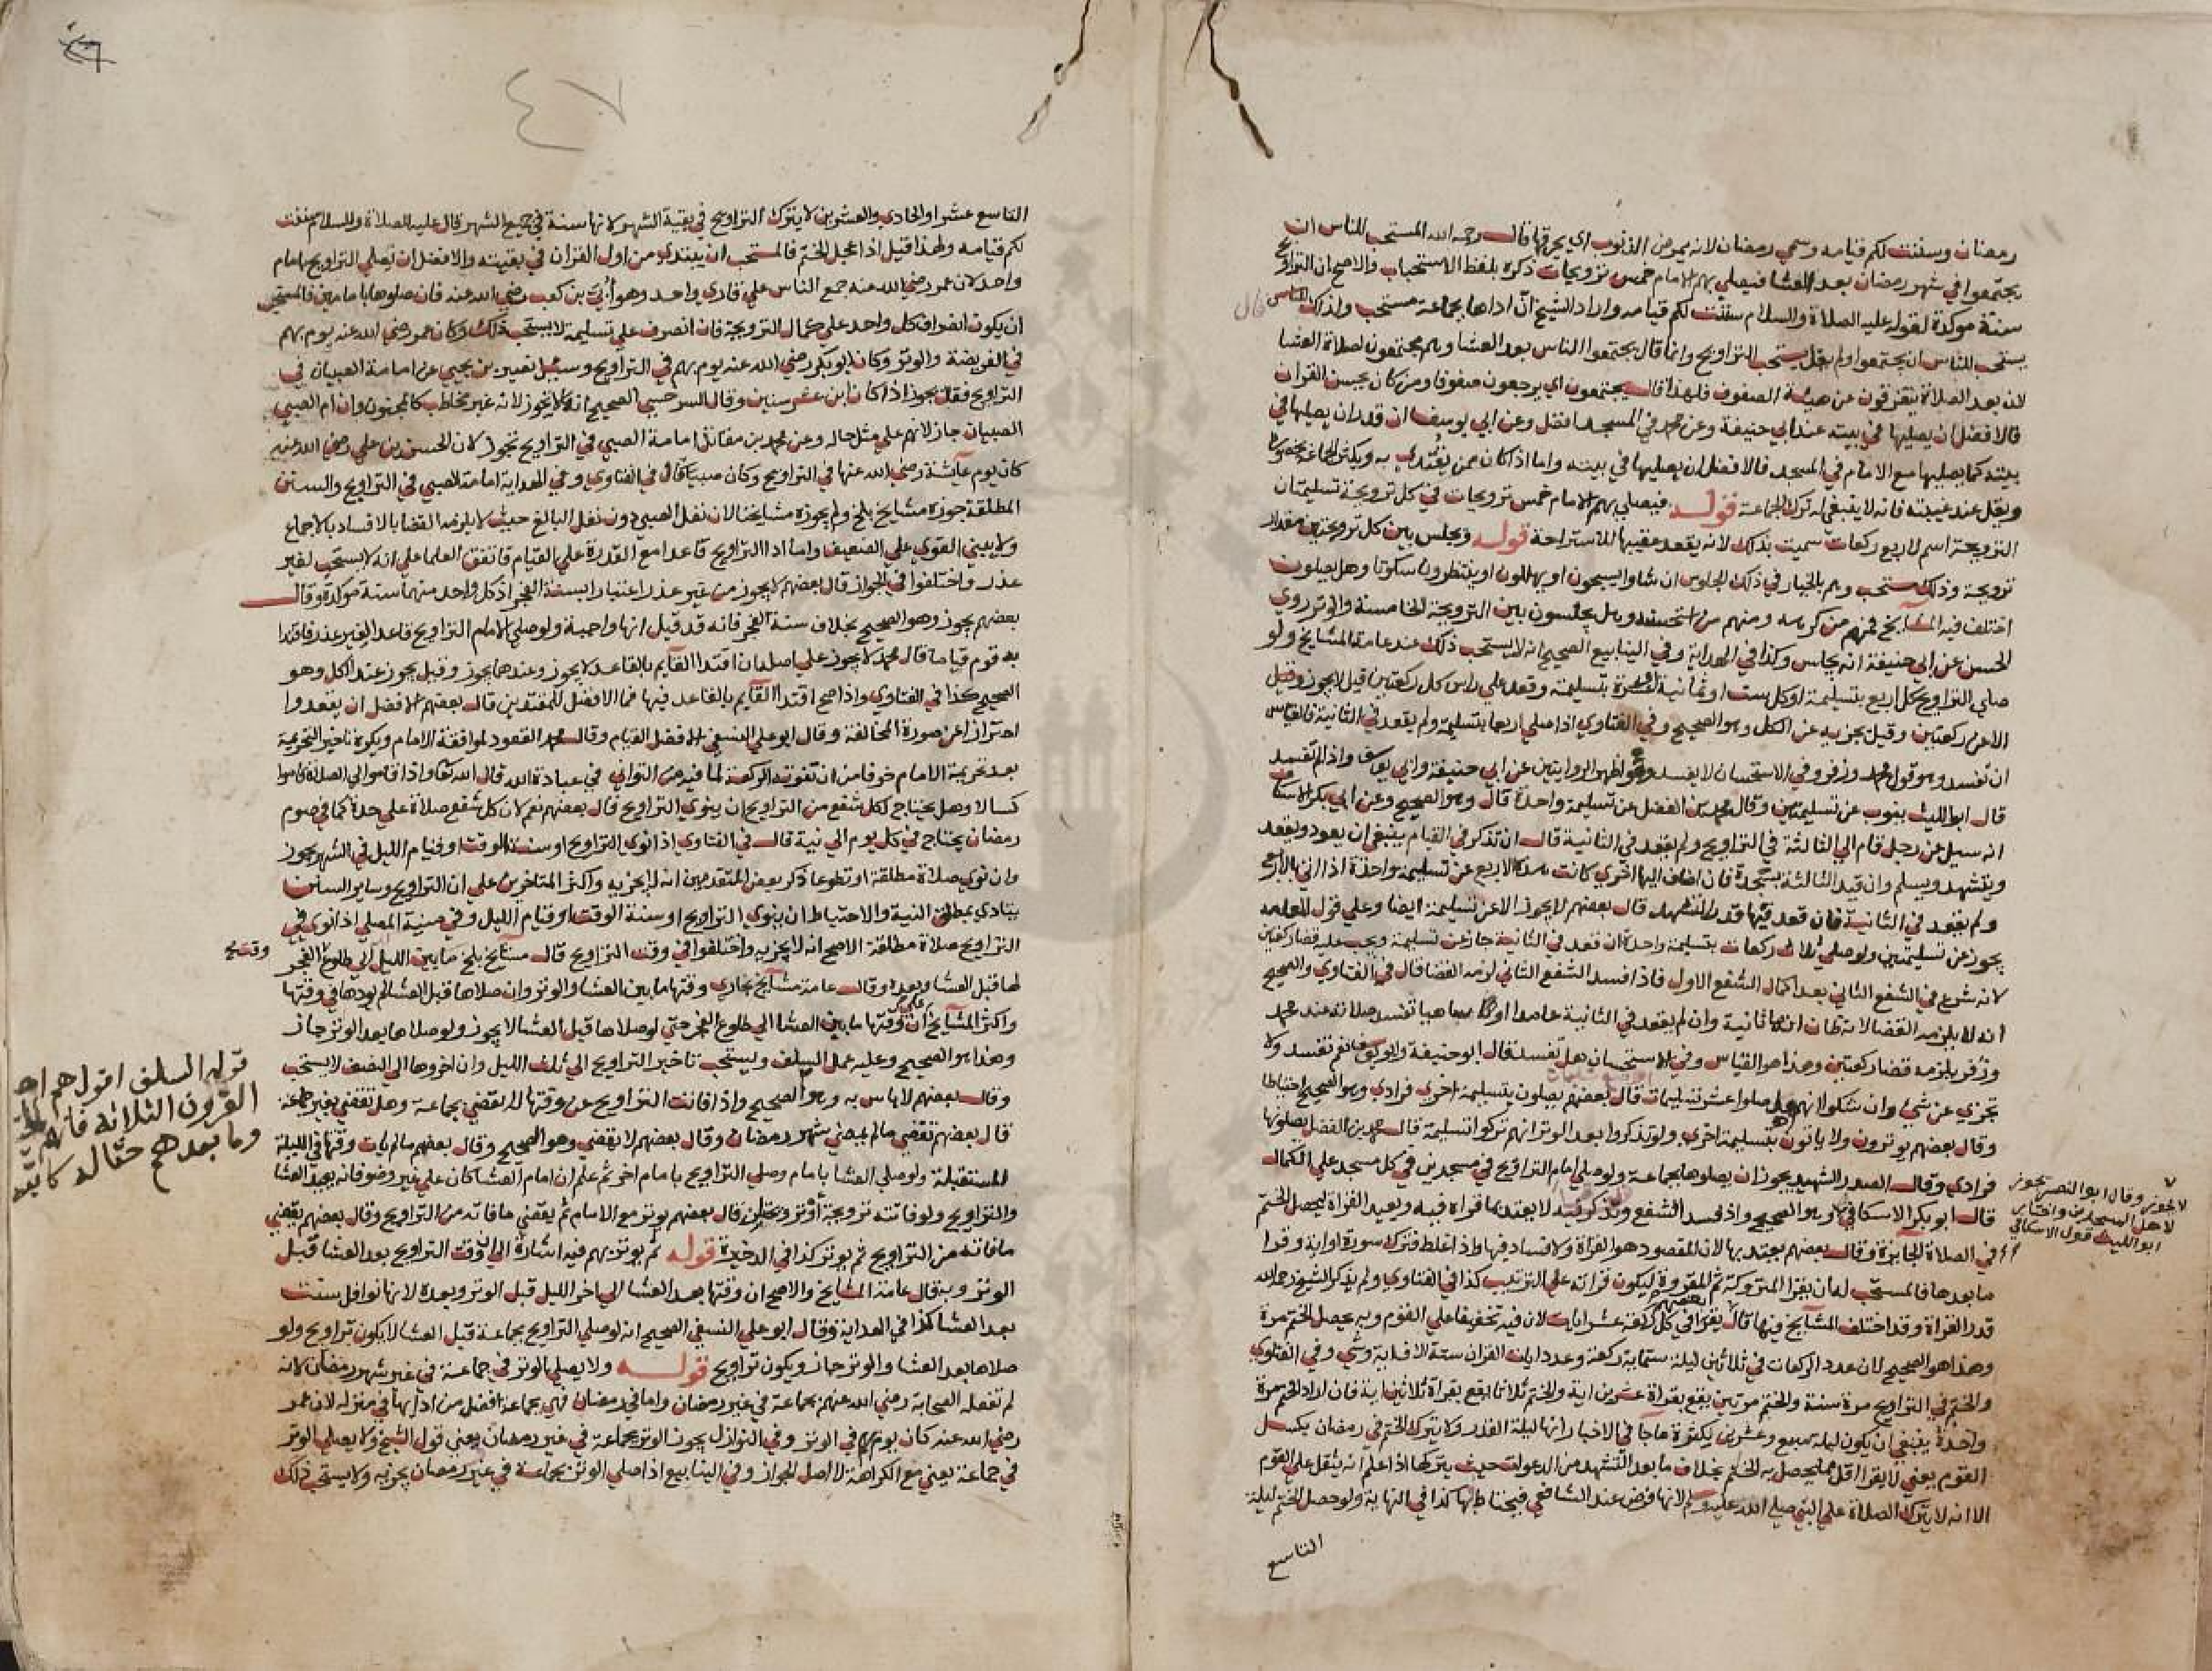 رمضان وسننت لكم قيامه وسمي رمضان لانه يرمض الذنوب اي يحرقها قال رحمه الله المستحب للناس ان
يجتمعوا في شهر رمضان بعد العشا فيصلي بهم الامام خمس ترويحات ذكره بلفظ الاستحباب والاصح ان التراويح
سنة موكدة لقوله عليه الصلاة والسلام سننت لكم قيامه واراد الشيخ ان اداها بجماعة مستحب ولذلك قال
يستحب للناس ان يجتمعوا ولم يقل يستحب التراويح وانما قال يجتمعوا الناس بعد العشا وهم مجتمعون لصلاة العشا
لان بعد الصلاة يتفرقون عن هيئة الصفوف فلهذا قال يجتمعون اي يرجعون صفوفا ومن كان يحسن القران
فالافضل ان يصليها في بيته عند ابي حنيفة وعن محمد في المسجد افضل وعن ابي يوسف ان قدر ان يصليها في
بيته كما يصليها مع الامام في المسجد فالافضل ان يصليها في بيته واما اذا كان ممن يقتدي به ويكثر الجماعة بحضوره
ويقل عند غيبته فانه لا ينبغي له ترك الجماعة قوله فيصلي بهم الامام خمس ترويحات في كل ترويحة تسليمتان
الترويحة اسم لاربع ركعات سميت بذلك لانه يقعد عقيبها للاستراحة قوله ويجلس بين كل ترويحتين مقدار
ترويحة وذلك مستحب وهم بالخيار في ذلك الجلوس ان شاوا يسبحون او يهللون او ينتظرون سكوتا وهل يصلون
اختلف فيه المشايخ فمنهم من كرهه ومنهم من استحسنه وهل يجلسون بين الترويحة الخامسة والوتر روي
الحسن عن ابي حنيفة انه يجلس وكذا في الهداية وفي الينابيع الصحيح انه لا يستحب ذلك عند عامة المشايخ ولو
صلي التراويح كل اربع بتسليمة او كل ست او ثمانية او عشرة بتسليمة وقعد علي راس كل ركعتين قيل لا يجوز وقيل
الا عن ركعتين وقيل يجزيه عن الكل وهو الصحيح وفي الفتاوي اذا صلي اربعا بتسليمة ولم يقعد في الثانية فالقياس
ان تفسد وهو قول محمد وزفر وفي الاستحسان لا يفسد وهو اظهر الروايتين عن ابي حنيفة وابي يوسف واذا لم تفسد
قال ابو الليث ينوب عن تسليمتين وقال محمد بن الفضل عن تسليمة واحدة قال وهو الصحيح وعن ابي بكر الاسكاف
انه سيل عن رجل قام الي الثالثة في التراويح ولم يقعد في الثانية قال ان تذكر في القيام ينبغي ان يعود ويقعد
ويتشهد ويسلم وان قيد الثالثة بسجدة فان اضاف اليها اخري كانت هذه الاربع عن تسليمة واحدة اذا اتي بالاربع
ولم يقعد في الثانية فان قعد فيها قدر التشهد قال بعضهم لا يجوز الا عن تسليمة ايضا وعلي قول العامة
يجوز عن تسليمتين ولو صلي ثلاث ركعات بتسليمة واحدة ان قعد في الثانية جاز عن تسليمة ويجب عليه قضا ركعتين
لانه شرع في الشفع الثاني بعد اكمال الشفع الاول فاذا افسد الشفع الثاني لزمه القضا قال في الفتاوي والصحيح
انه لا يلزمه القضا لانه ظان انها ثانية وان لم يقعد في الثانية عامدا او ساهيا تفسد صلاته عند محمد
وزفر يلزمه قضا ركعتين وهذا هو القياس وفي الاستحسان هل تفسد قال ابو حنيفة وابو يوسف نعم تفسد ولا
تجزي عن شي وان شكوا انهم هل صلوا عشر تسليمات قال بعضهم يصلون بتسليمة اخري فرادي وهو الصحيح احتياطا
وقال بعضهم يوترون ولا ياتون بتسليمة اخري ولو تذكروا بعد الوتر انهم تركوا تسليمة قال محمد بن الفضل يصلونها
فرادي وقال الصدر الشهيد يجوز ان يصلوها بجماعة ولو صلي امام التراويح في مسجدين في كل مسجد علي الكمال
قال ابو بكر الاسكاف وهو الصحيح واذا فسد الشفع وتذكر فيه لا يعتد بما قراه فيه ويعيد القراة ليحصل الختم
في الصلاة الجايزة وقال بعضهم يعتد بها لان المقصود هو القراة ولا فساد فيها واذا غلط فترك سورة او اية وقرا
ما بعدها فالمستحب له ان يقرا المتروكة ثم المقروة ليكون قراته علي الترتيب كذا في الفتاوي ولم يذكر الشيخ رحمه الله
قدر القراة وقد اختلف المشايخ فيها قال بعضهم يقرا في كل ركعة عشر ايات لان فيه تخفيفا علي القوم وبه يحصل الختم مرة
وهذا هو الصحيح لان عدد الركعات في ثلاثين ليلة ستماية ركعة وعدد ايات القران ستة الاف اية وشي وفي الفتاوي
والختم في التراويح مرة سنة والختم مرتين يقع بقراة عشرين اية والختم ثلاثا يقع بقراة ثلاثين اية فان اراد الختم مرة
واحدة ينبغي ان يكون ليلة سبع وعشرين لكثرة ما جا في الاخبار انها ليلة القدر ولا يترك الختم في رمضان بكسل
القوم يعني لا يقرا اقل مما يحصل به الختم بخلاف ما بعد التشهد من الدعوات حيث يتركها اذا علم انه يثقل علي القوم
الا انه لا يترك الصلاة علي النبي صلي الله عليه وسلم لانها فرض عند الشافعي فيحتاط لها كذا في النهاية ولو حصل الختم ليلة
التاسع
لا يجوز وقال ابو النصر يجوز
لاهل المسجدين واختار
ابو الليث قول الاسكاف
٤٧
التاسع عشر او الحادي والعشرين لا يترك التراويح في بقية الشهر لانها سنة في جميع الشهر قال عليه الصلاة والسلام سننت
لكم قيامه ولهذا قيل اذا عجل الختم فالمستحب ان يبتدي من اول القران في بقيته والافضل ان يصلي التراويح بامام
واحد لان عمر رضي الله عنه جمع الناس علي قاري واحد وهو ابي بن كعب رضي الله عنه فان صلوها بامامين فالمستحب
ان يكون انصراف كل واحد علي كمال الترويحة فان انصرف علي تسليمة لا يستحب ذلك وكان عمر رضي الله عنه يوم بهم
في الفريضة والوتر وكان ابو بكر رضي الله عنه يوم بهم في التراويح وسيل نصير بن يحيي عن امامة الصبيان في
التراويح فقال يجوز اذا كان ابن عشر سنين وقال السرخسي الصحيح انه لا يجوز لانه غير مخاطب كالمجنون وان ام الصبي
الصبيان جاز لانهم علي مثل حاله وعن محمد بن مقاتل امامة الصبي في التراويح تجوز لان الحسن بن علي رضي الله عنه
كان يوم عايشة رضي الله عنها في التراويح وكان صبيا قال في الفتاوي وفي الهداية امامة الصبي في التراويح والسنن
المطلقة جوزه مشايخ بلخ ولم يجوزه مشايخنا لان نفل الصبي دون نفل البالغ حيث لا يلزمه القضا بالافساد بالاجماع
ولا يبني القوي علي الضعيف واما ادا التراويح قاعدا مع القدرة علي القيام فاتفق العلما علي انه لا يستحب لغير
عذر واختلفوا في الجواز قال بعضهم لا يجوز من غير عذر اعتبارا بسنة الفجر اذ كل واحد منهما سنة موكدة وقال
بعضهم يجوز وهو الصحيح بخلاف سنة الفجر فانه قد قيل انها واجبة ولو صلي الامام التراويح قاعدا لغير عذر فاقتدا
به قوم قياما قال محمد لا يجوز علي اصله ان اقتدا القايم بالقاعد لا يجوز وعندهما يجوز وقيل يجوز عند الكل وهو
الصحيح كذا في الفتاوي واذا صح اقتدا القايم بالقاعد فيها فما الافضل للمقتدين قال بعضهم الافضل ان يقعدوا
احترازا عن صورة المخالفة وقال ابو علي النسفي الافضل القيام وقال محمد القعود لموافقة الامام ويكره تاخير التحريمة
بعد تحريمة الامام خوفا من ان تفوته الركعة لما فيه من التواني في عبادة الله قال الله تعالي واذا قاموا الي الصلاة قاموا
كسالا وهل يحتاج لكل شفع من التراويح ان ينوي التراويح قال بعضهم نعم لان كل شفع صلاة علي حدة كما في صوم
رمضان يحتاج في كل يوم الي نية قال في الفتاوي اذا نوي التراويح او سنة الوقت او قيام الليل في الشهر يجوز
وان نوي صلاة مطلقة او تطوعا ذكر بعض المتقدمين انه لا يجزيه واكثر المتاخرين علي ان التراويح وساير السنن
يتادي بمطلق النية والاحتياط ان ينوي التراويح او سنة الوقت او قيام الليل وفي منية المصلي اذا نوي في
التراويح صلاة مطلقة الاصح انه لا يجزيه واختلفوا في وقت التراويح قال مشايخ بلخ ما بين الليل الي طلوع الفجر
لها قبل العشا وبعده وقال عامة مشايخ بخاري وقتها ما بين العشا والوتر وان صلاها قبل العشا لم يودها في وقتها
واكثر المشايخ علي ان وقتها ما بين العشا الي طلوع الفجر حتي لو صلاها قبل العشا لا يجوز ولو صلاها بعد الوتر جاز
وهذا هو الصحيح وعليه عمل السلف ويستحب تاخير التراويح الي ثلث الليل وان اخروها الي النصف لا يستحب
وقال بعضهم لا باس به وهو الصحيح واذا فاتت التراويح عن وقتها لا يقضي بجماعة وهل تقضي بغير جماعة
قال بعضهم تقضي ما لم يمضي شهر رمضان وقال بعضهم لا يقضي وهو الصحيح وقال بعضهم ما لم يات وقتها في الليلة
المستقبلة ولو صلي العشا بامام وصلي التراويح بامام اخر ثم علم ان امام العشا كان علي غير وضو فانه يعيد العشا
والتراويح ولو فاتته ترويحة او ترويحتان قال بعضهم يوتر مع الامام ثم يقضي ما فاته من التراويح وقال بعضهم يقضي
ما فاته من التراويح ثم يوتر كذا في الذخيرة قوله ثم يوتر بهم فيه اشارة الي ان وقت التراويح بعد العشا قبل
الوتر وبه قال عامة المشايخ والاصح ان وقتها بعد العشا الي اخر الليل قبل الوتر وبعده لانها نوافل سنت
بعد العشا كذا في الهداية وقال ابو علي النسفي الصحيح انه لو صلي التراويح بجماعة قبل العشا لا يكون تراويح ولو
صلاها بعد العشا والوتر جاز ويكون تراويح قوله ولا يصلي الوتر في جماعة في غير شهر رمضان لانه
لم تفعله الصحابة رضي الله عنهم بجماعة في غير رمضان واما في رمضان فهي بجماعة افضل من ادايها في منزله لان عمر
رضي الله عنه كان يومهم في الوتر وفي النوازل يجوز الوتر بجماعة في غير رمضان يعني قول الشيخ ولا يصلي الوتر
في جماعة يعني مع الكراهة لا اصل الجواز وفي الينابيع اذا صلي الوتر بجماعة في غير رمضان يجزيه ولا يستحب ذلك
قوله السلف اقول هم
القرون الثلاثة
وما بعدهم